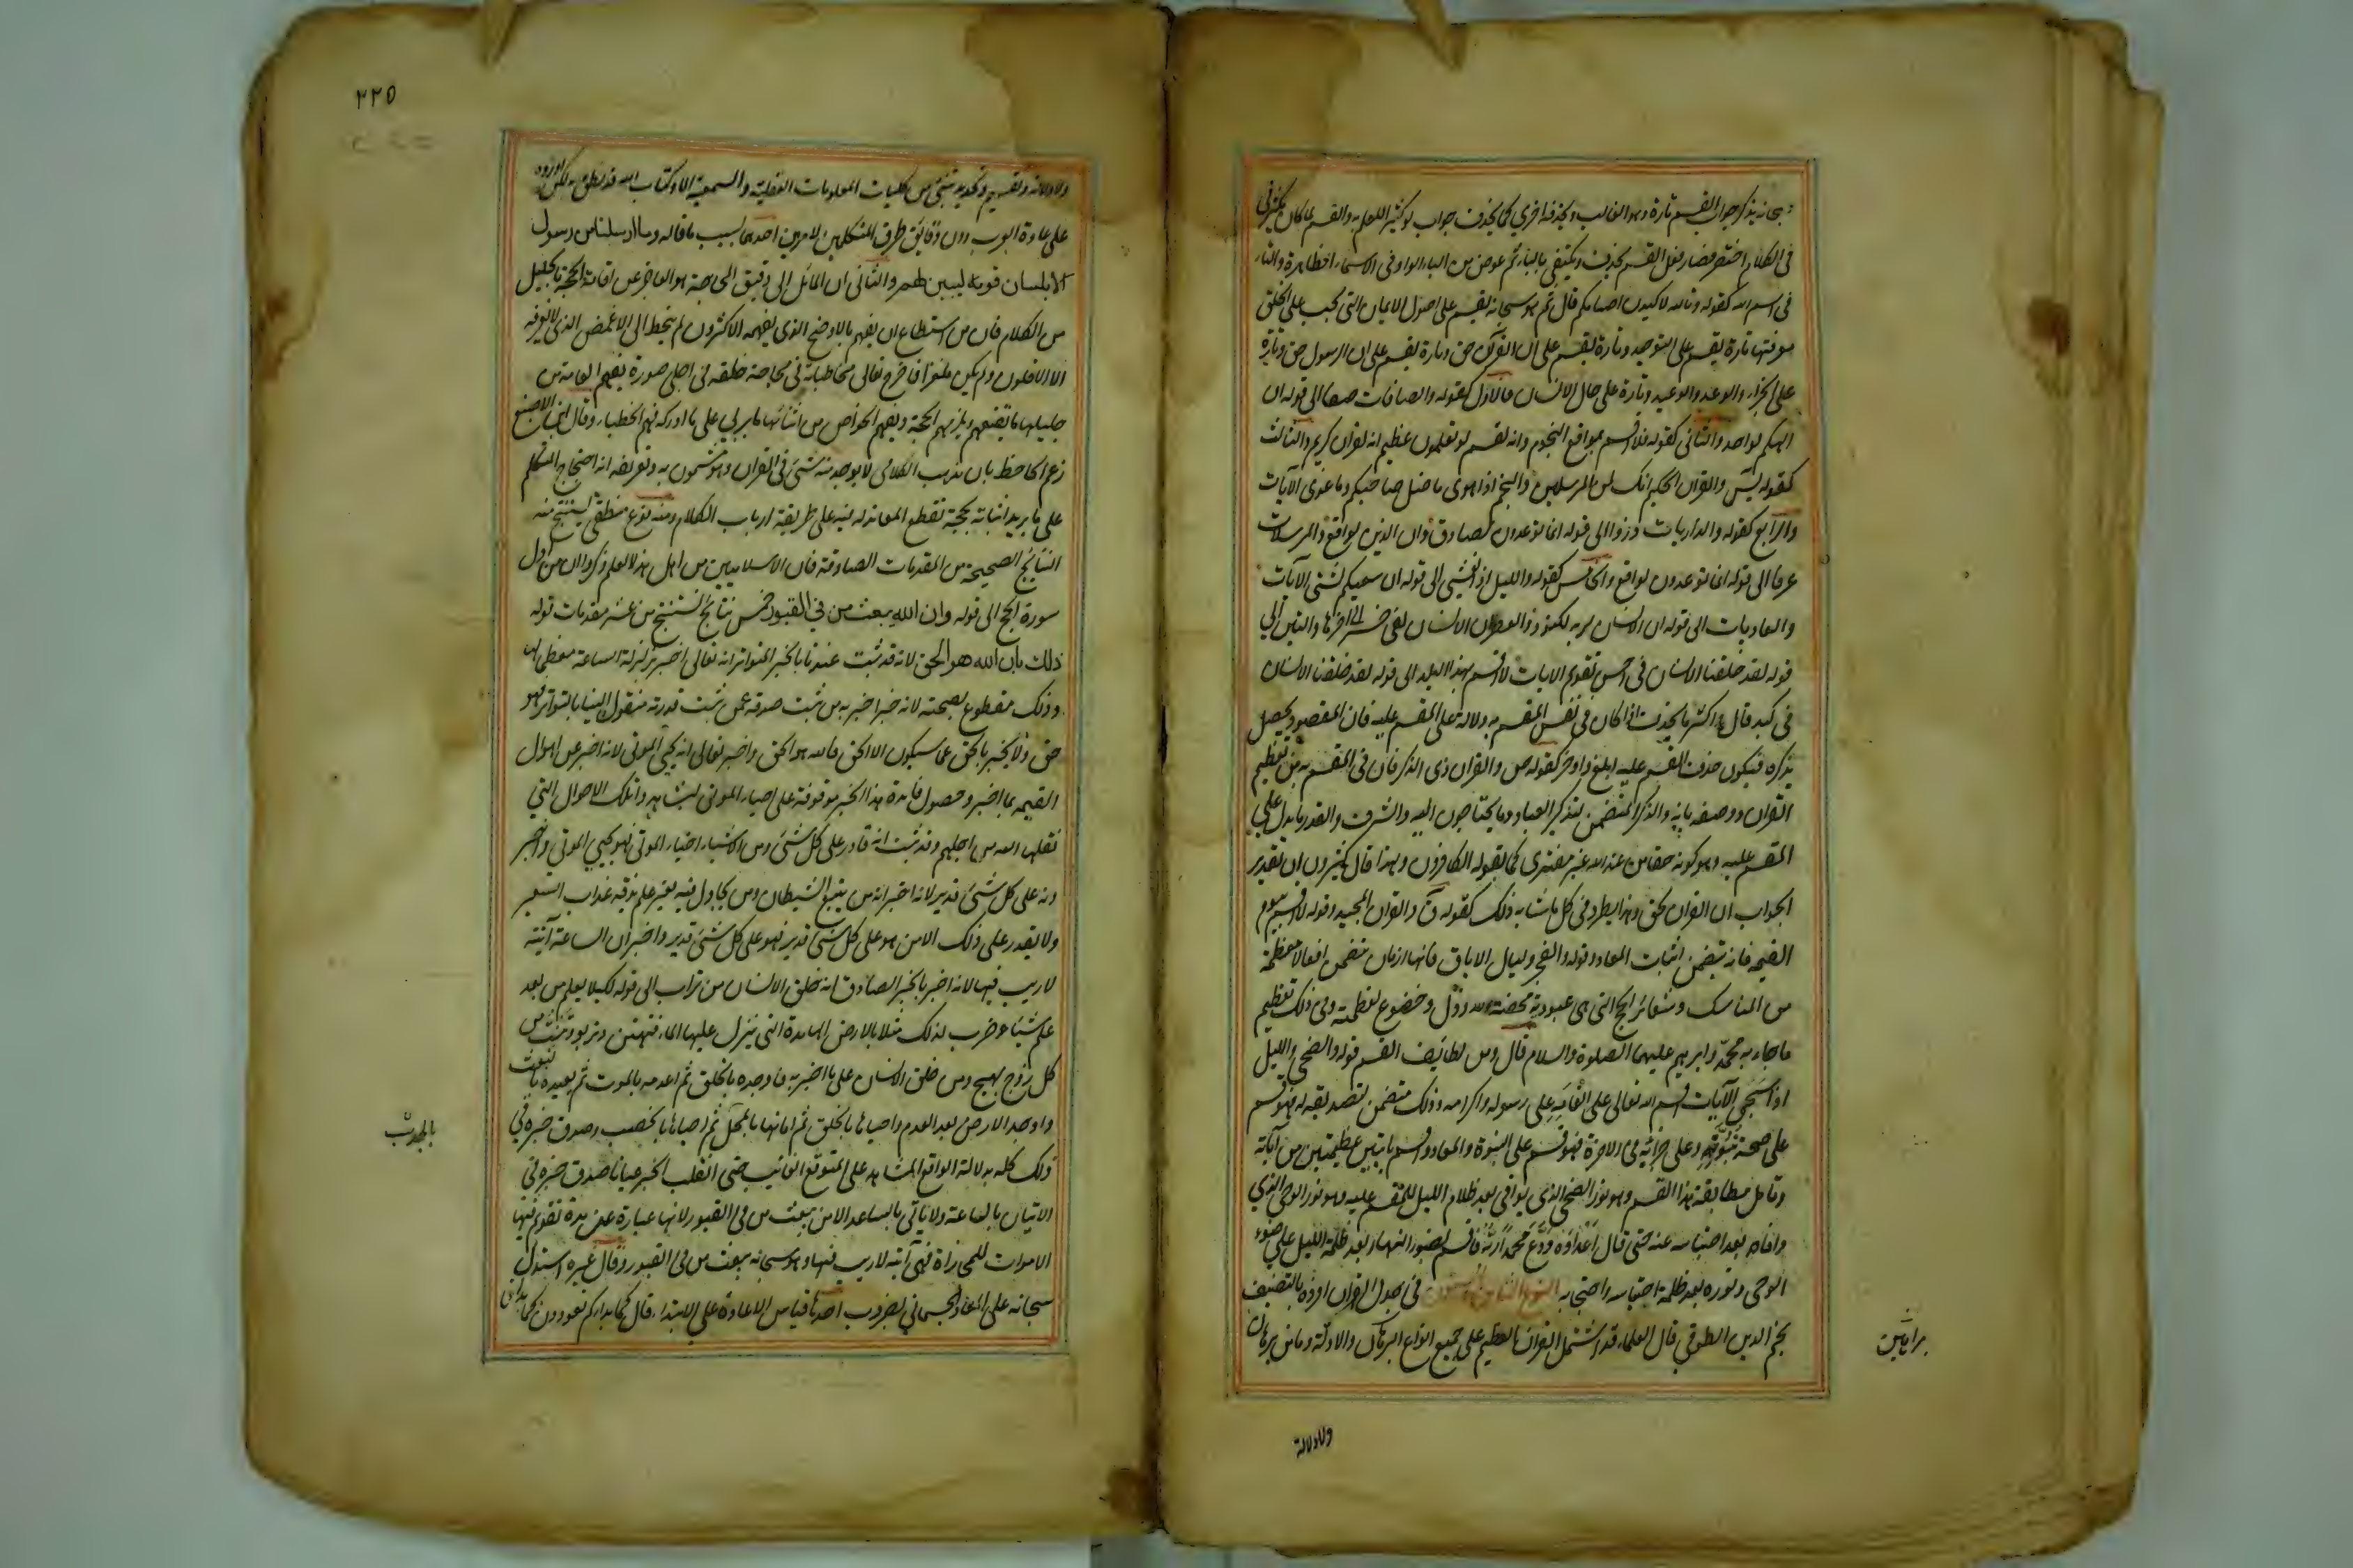 سبحانه يذكر جواب القسم تارة وهو الغالب ويحذفه اخري كما يحذف جواب لو كثيرا للعلم به والقسم لما كان يكثر في
في الكلام اختصر فصار فعل القسم يحذف ويكتفي بالباء ثم عوض من الباء الواو في الاسماء الظاهرة والتاء
في اسم الله كقوله وتالله لاكيدن اصنامكم قال ثم هو سبحانه يقسم على اصول الايمان التي تجب على الخلق
معرفتها تارة يقسم على التوحيد وتارة يقسم على ان القرآن حق وتارة يقسم على ان الرسول حق وتارة
على الجزاء والوعد والوعيد وتارة على حال الانسان فالاول كقوله والصافات صفا الى قوله ان
الهكم لواحد والثاني كقوله فلا اقسم بمواقع النجوم وانه لقسم لو تعلمون عظيم انه لقران كريم والثالث
كقوله يس والقران الحكيم انك لمن المرسلين والنجم اذا هوى ما ضل صاحبكم وما غوى الآيات
والرابع كقوله والذاريات ذروا الى قوله انما توعدون لصادق وان الدين لواقع والمرسلات
عرفا الى قوله انما توعدون لواقع والخامس كقوله والليل اذا يغشى الى قوله ان سعيكم لشتى الآيات
والعاديات الى قوله ان الانسان لربه لكنود والعصر ان الانسان لفي خسر الى اخرها والتين الي
قوله لقد خلقنا الانسان في احسن تقويم الايات لا اقسم بهذا البلد الى قوله لقد خلقنا الانسان
في كبد قال واكثر ما يحذف اذا كان في نفس المقسم به دلالة على المقسم عليه فان المقصود يحصل
بذكره فيكون حذف القسم عليه ابلغ واوجز كقوله ص والقران ذى الذكر فان في المقسم به من تعظيم
القرآن ووصفه بانه ذو الذكر المتضمن لتذكير العباد وما يحتاجون اليه والشرف والقدر ما يدل على
المقسم عليه وهو كونه حقا من عند الله غير مفترى كما يقوله الكافرون ولهذا قال كثيرون ان تقدير
الجواب ان القران لحق وهذا يطرد في كل ما شابه ذلك كقوله ق والقران المجيد وقوله لا اقسم بيوم
القيمه فانه يتضمن اثبات المعاد وقوله والفجر وليال الايات فانها ازمان تتضمن افعالا معظمة
من المناسك وشعائر الحج التي هي عبودية محضة لله وذل وخضوع لعظمته وفي ذلك تعظيم
ما جاء به محمد وابراهيم عليهما الصلوة والسلام قال ومن لطائف القسم قوله والضحى والليل
اذا سجى الآيات اقسم الله تعالى على انعامه على رسوله واكرامه وذلك متضمن لتصديقه له فهو قسم
على صحة نبوته وعلى جزائه في الاخرة فهو قسم على النبوة والمعاد واقسم بايتين عظيمتين من آياته
وتامل مطابقة هذا القسم وهو نور الضحى الذى يوافي بعد ظلام الليل للمقسم عليه وهو نور الوحي الذي
وافاه بعد احتباسه عنه حتى قال اعداؤه ودع محمدا ربه فاقسم بضوء النهار بعد ظلمة الليل على ضوء
الوحى ونوره بعد ظلمة احتباسه واحتجابه النوع الثامن والستون في جدل القران افرده بالتصنيف
نجم الدين الطوفي قال العلماء قد اشتمل القران العظيم على جميع انواع البراهين والادلة وما من برهان
براهين
ولا دلالة
٢٢٥
ولا دلالة وتقسيم وتحديد تنبئ من كليات المعلومات العقلية والسمعية الا وكتاب الله قد نطق به لكن اورده
على عادة العرب دون دقائق طرق المتكلمين لامرين احدهما بسبب ما قاله وما ارسلنا من رسول
الا بلسان قومه ليبين لهم والثاني ان المائل الى دقيق المحاجة هو العاجز عن اقامة الحجة بالجليل
من الكلام فان من استطاع ان يفهم بالاوضح الذى يفهمه الاكثرون لم ينحط الى الاغمض الذى لا يعرفه
الا الاقلون ولم يكن ملغزا فاخرج تعالى مخاطباته في محاجة خلقه في اجلى صورة ليفهم العامة من
جليلها ما يقنعهم ويلزمهم الحجة ويفهم الخواص من اثنائها ما يربي على ما ادركه فهم الخطباء وقال ابن ابي الاصبع
زعم الجاحظ بان مذهب الكلامي لا يوجد منه شئ في القران وهو مشحون به وتعريفه انه احتجاج المتكلم
على ما يريد اثباته بحجة تقطع المعاند له فيه على طريقة ارباب الكلام ومنه نوع منطقي يستنتج منه
النتائج الصحيحة من المقدمات الصادقة فان الاسلاميين من اهل هذا العلم ذكروا ان من اول
سورة الحج الى قوله وان الله يبعث من في القبور خمس نتائج تستنتج من عشر مقدمات قوله
ذلك بان الله هو الحق لانه قد ثبت عندنا بالخبر المتواتر انه تعالى اخبر بزلزلة الساعة معظما لها
وذلك مقطوع بصحته لانه خبر اخبر به من ثبت صدقه عمن ثبت قدرته منقول الينا بالتواتر فهو
حق ولا يخبر بالحق عما سيكون الا الحق فالله هو الحق واخبر تعالى انه يحيي الموتى لانه اخبر عن اهوال
القيمه بما اخبر وحصول فائدة هذا الخبر موقوفة على احياء الموتى ليشاهدوا تلك الاهوال التي
نقلها الله من اجلهم وقد ثبت انه قادر على كل شئ ومن الاشياء احياء الموتى فهو يحيي الموتى واخبر
انه على كل شئ قدير لانه اخبر انه من يتبع الشيطان ومن يجادل فيه بغير علم يذقه عذاب السعير
ولا يقدر على ذلك الا من هو على كل شئ قدير فهو على كل شئ قدير واخبر ان الساعة آتية
لا ريب فيها لانه اخبر بالخبر الصادق انه خلق الانسان من تراب الى قوله لكيلا يعلم من بعد
علم شيئا وضرب لذلك مثلا بالارض الهامدة التي ينزل عليها الماء فتهتز وتربو وتنبت من
كل زوج بهيج ومن خلق الانسان على ما اخبر به فاوجده بالخلق ثم اعدمه بالموت ثم يعيده بالبعث
واوجد الارض بعد العدم واحياها بالخلق ثم اماتها بالمحل ثم احياها بالخصب وصدق خبره في
ذلك كله بدلالة الواقع المشاهد على المتوقع الغائب حتى انقلب الخبر عيانا صدق خبره في
الاتيان بالساعة ولا ياتي بالساعة الا من يبعث من في القبور لانها عبارة عن مدة تقوم فيها
الاموات للمجازاة فهي آتية لا ريب فيها وهو سبحانه يبعث من في القبور وقال غيره استدل
سبحانه على المعاد الجسماني بضروب احدها قياس الاعادة على الابتداء قال كما بداكم تعودون كما بدانا